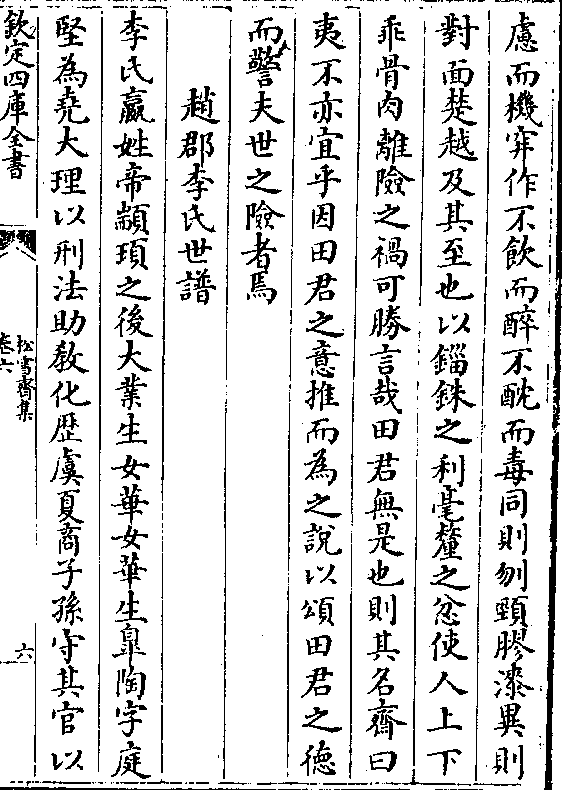 慮而機穽作不飲而醉不酖而毒同則刎頸膠漆異則
對面楚越及其至也以錙銖之利毫釐之忿使人上下
乖骨肉離險之禍可勝言哉田君無是也則其名齋曰
夷不亦宜乎因田君之意推而為之說以頌田君之徳
而警夫世之險者焉
趙郡李氏世譜
李氏嬴姓帝顓頊之後大業生女華女華生臯陶字庭
堅為堯大理以刑法助教化歴虞夏商子孫守其官以
欽定四庫全書
松雪齋集
卷六
六